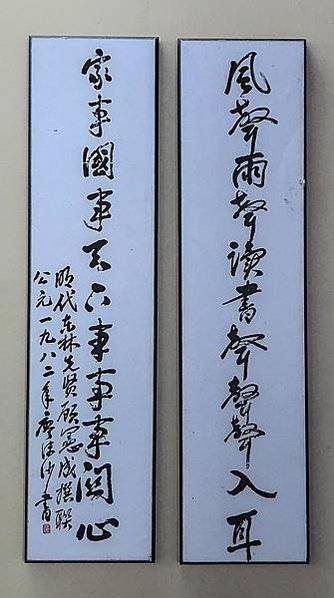 風聲雨聲讀書聲聲聲入耳
家事國事天下事事事關心
明代東林先賢顧憲成撰聯
公元一九八二年廖沫沙書